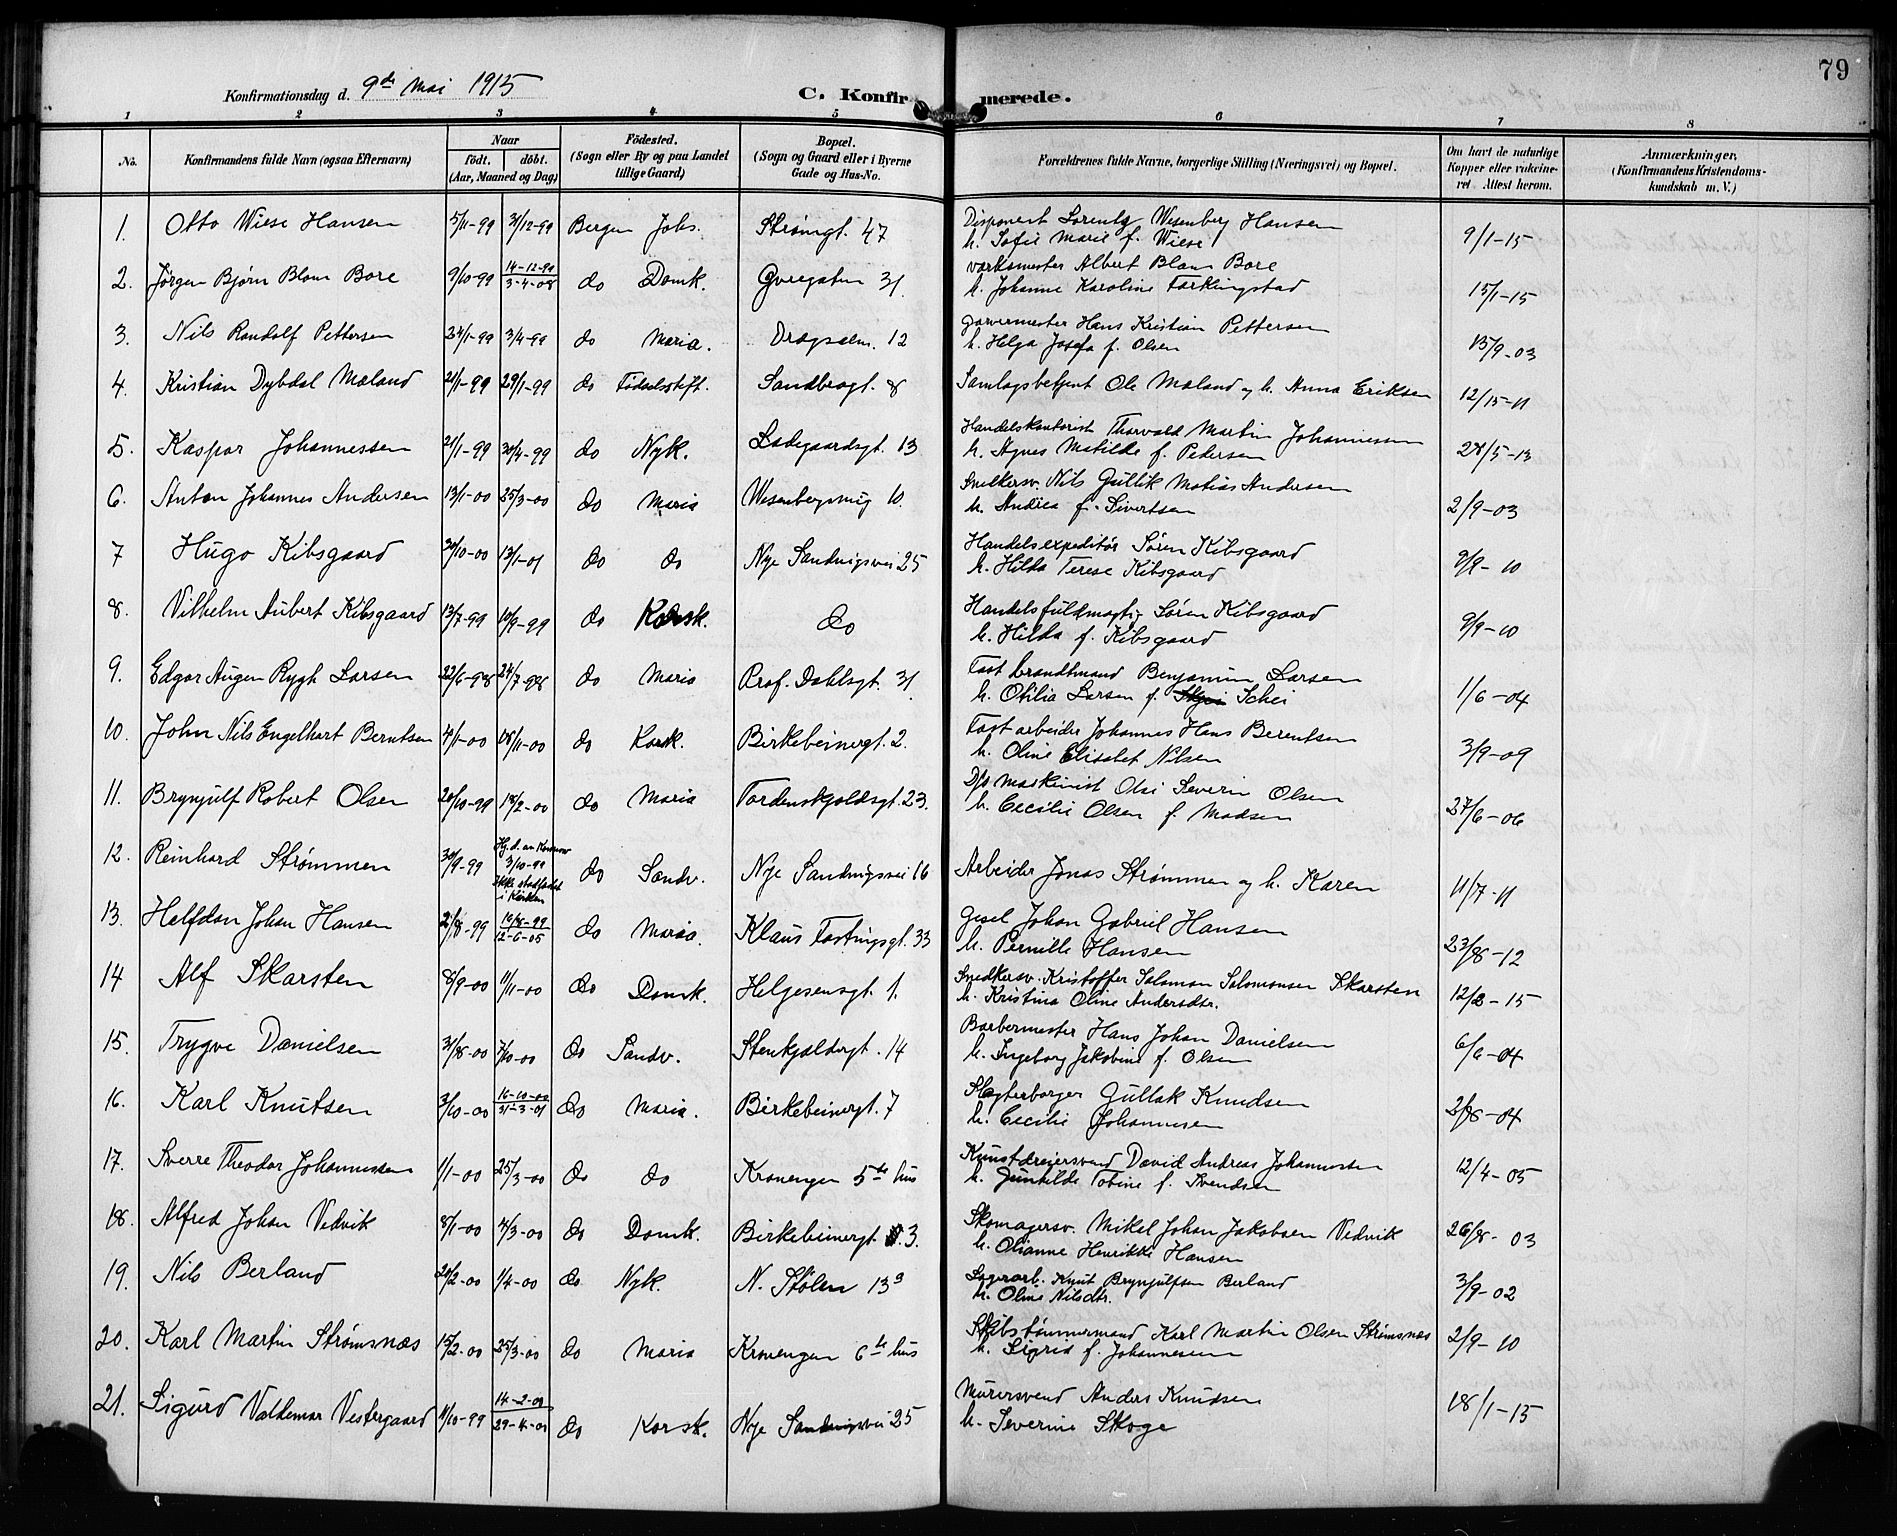 79
Konfirmationsdag d. 9de Mai 1915
C. Konfirmerede.
1 2 3 4 5 6 7 8
No.
Konfirmandens fulde Navn (ogsaa Efternavn)
Naar
födt. döbt.
(Aar, Maaned og Dag)
Födested.
(Sogn eller By og paa Landet
tillige Gaard)
Bopæl.
(Sogn og Gaard eller i Byerne
Gade og Hus-No.
Forældrenes fulde Navne, borgerlige Stilling (Næringsvei) og Bopæl.
Om havt de naturlige
Kopper eller vakcine-
ret. Attest herom.
Anmærkninger.
(Konfirmandens Kristendoms-
kundskab m. V.)
1. Otto Wiese Hansen 5/11-99 31/12-99 Bergen Johs. Strømgt. 47 Disponent Lorentz Wesenberg Hansen
h. Sofie Marie f. Wiese 9/1-15
2. Jørgen Bjørn Blom Bore 9/10-99 14-12-99
3-4-08 do Domk. 31. Værksmester Albert Blom Bore
h. Johanne Karoline Tarkingstad 15/1-15
3. Nils Randolf Pettersen 24/1-99 3/4-99 do Maria. Dragsalm. 12 Garvermester Hans Kristian Pettersen
h. Helga Josefa f. Olsen 15/9-03
4. Kristian Dybdal Mæland 21/1-99 29/1-99 do Fødselsstift. Sandbrogt. 8 Ole Mæland og h. Anna Eriksen 12/15-11
5. Kaspar Johannessen 21/1-99 30/4-99 do Nyk. Ladegaardsgt. 13 Handelskontorist Thorvald Martin Johannessen
h. Agnes Matilde f. Pedersen 28/5-13
6. Anton Johannes Andersen 13/1-00 25/3-00 do Maria Wesenbergsmug 10. Snedkersv. Nils Gullik Matias Andersen
h. Andrea f. Sivertsen 2/9-03
7 Hugo Kibsgaard 30/10-00 13/1-01 do do Nye Sandvigsvei 25 Handelsexpeditør Søren Kibsgaard
h. Hilda Terese Kibsgaard 9/9-10
8. Vilhelm Aubert Kibsgaard 13/7-99 10/9-99 do Korsk. do Handelsfuldmægtig Søren Kibsgaard
h. Hilda f. Kibsgaard 9/9-10
9. Edgar Augen Rygh Larsen 22/6-98 24/7-98 do Maria Prof. Dahlsgt. 31 Fast brandmand Benjamin Larsen
h. Otilia Larsen f. Schei 1/6-04
10. John Nils Engelhart Berntsen 4/1-00 18/11-00 do Korsk. Birkebeinergt. 2. Fast arbeider Johannes Hans Berentsen
h. Oline Elisabet Nilsen 3/9-09
11. Brynjulf Robert Olsen 20/10-99 18/2-00 do Maria Tordenskjoldsgt. 23. D/s maskinist Olai Severin Olsen
h. Cecilie Olsen f. Madsen 27/6-06
12. Reinhard Strømmen 30/9-99 Hj.d. av
3/10-99
Ikke stadfæstet
i Kirken do Sandv. Nye Sandvigsvei 16 Arbeider Jonas Strømmen og h. Karen 11/7-11
13. Halfdan Johan Hansen 2/8-99 10/8-99
12-6-05 do Maria. Klaus Fastingsgt. 33 Gesel Johan Gabriel Hansen
h. Pernille Hansen 23/8-12
14 Alf Skarsten 8/9-00 11/11-00 do Domk. Helgesensgt. 1. Snedkersv. Kristoffer Salomon Salomonsen Skarsten
h. Kristina Oline Andersdtr. 12/2-15
15. Trygve Danielsen 31/8-00 7/10-00 do Sandv. Stenkjeldergt. 14 Barbermester Hans Johan Danielsen
h. Ingeborg Jakobine f. Olsen 6/6-04
16. Karl Knutsen 3/10-00 16-10-00
31-3-01 do Maria. Birkebeinergt. 7 Slagterborger Gullak Knudsen
h. Cecilie Johannesen 2/8-04
17. Sverre Theodor Johannessen 1/1-00 25/3-00 do do Kronengen 5te hus Kunstdreiersvend David Andreas Johannessen
h. Gunhilde Tobine f. Svendsen 12/4-05
18. Alfred Johan Vedvik 8/1-00 4/3-00 do Domk. Birkebeinergt. 3. Skomagersv. Mikal Johan Jakobsen Vedvik
h. Olianne Henrikke Hansen 26/8-03
19. Nils Berland 20/2-00 1/4-00 do Nyk. N. Stølen 13³ Lagerarb. Knut Brynjulfsen Berland
h. Oline Nilsdtr. 3/9-02
20. Karl Martin Strømsnæs 15/2-00 25/3-00 do Maria Kronengen 6te hus Skibstømmermand Karl Martin Olsen Strømsnæs
h. Sigrid f. Johannessen 2/9-10
21. Sigurd Valdemar Vestergaard 11/10-99 14-2-00
29-4-00 do Korsk. Nye Sandvigsvei 25 Murersvend Anders Knudsen
h. Severine Skoge 18/1-15